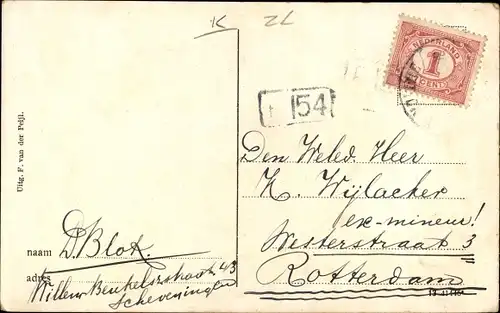 K
ZL
NEDERLAND
1
CENT
154
Uitg. F. van der Peijl.
Den Weled. Heer
K. Wijlacker
ex-mineur!
Westerstraat 3
Rotterdam
naam D. Blok.
adres Willem Beukelszstraat 43
Scheveningen